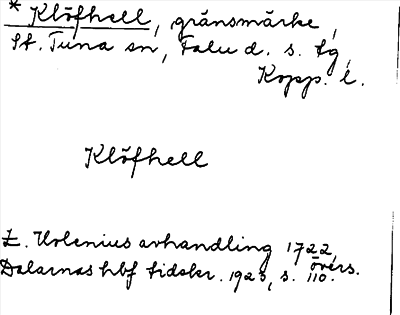 * Klöfhell, gränsmärke,
St. Tuna sn, Falu d. s. tg,
Kopp. l.
Klöfhell
E. Urlenius avhandling 1722, övers.
Dalarnas hbf tidskr. 1923, s. 110.